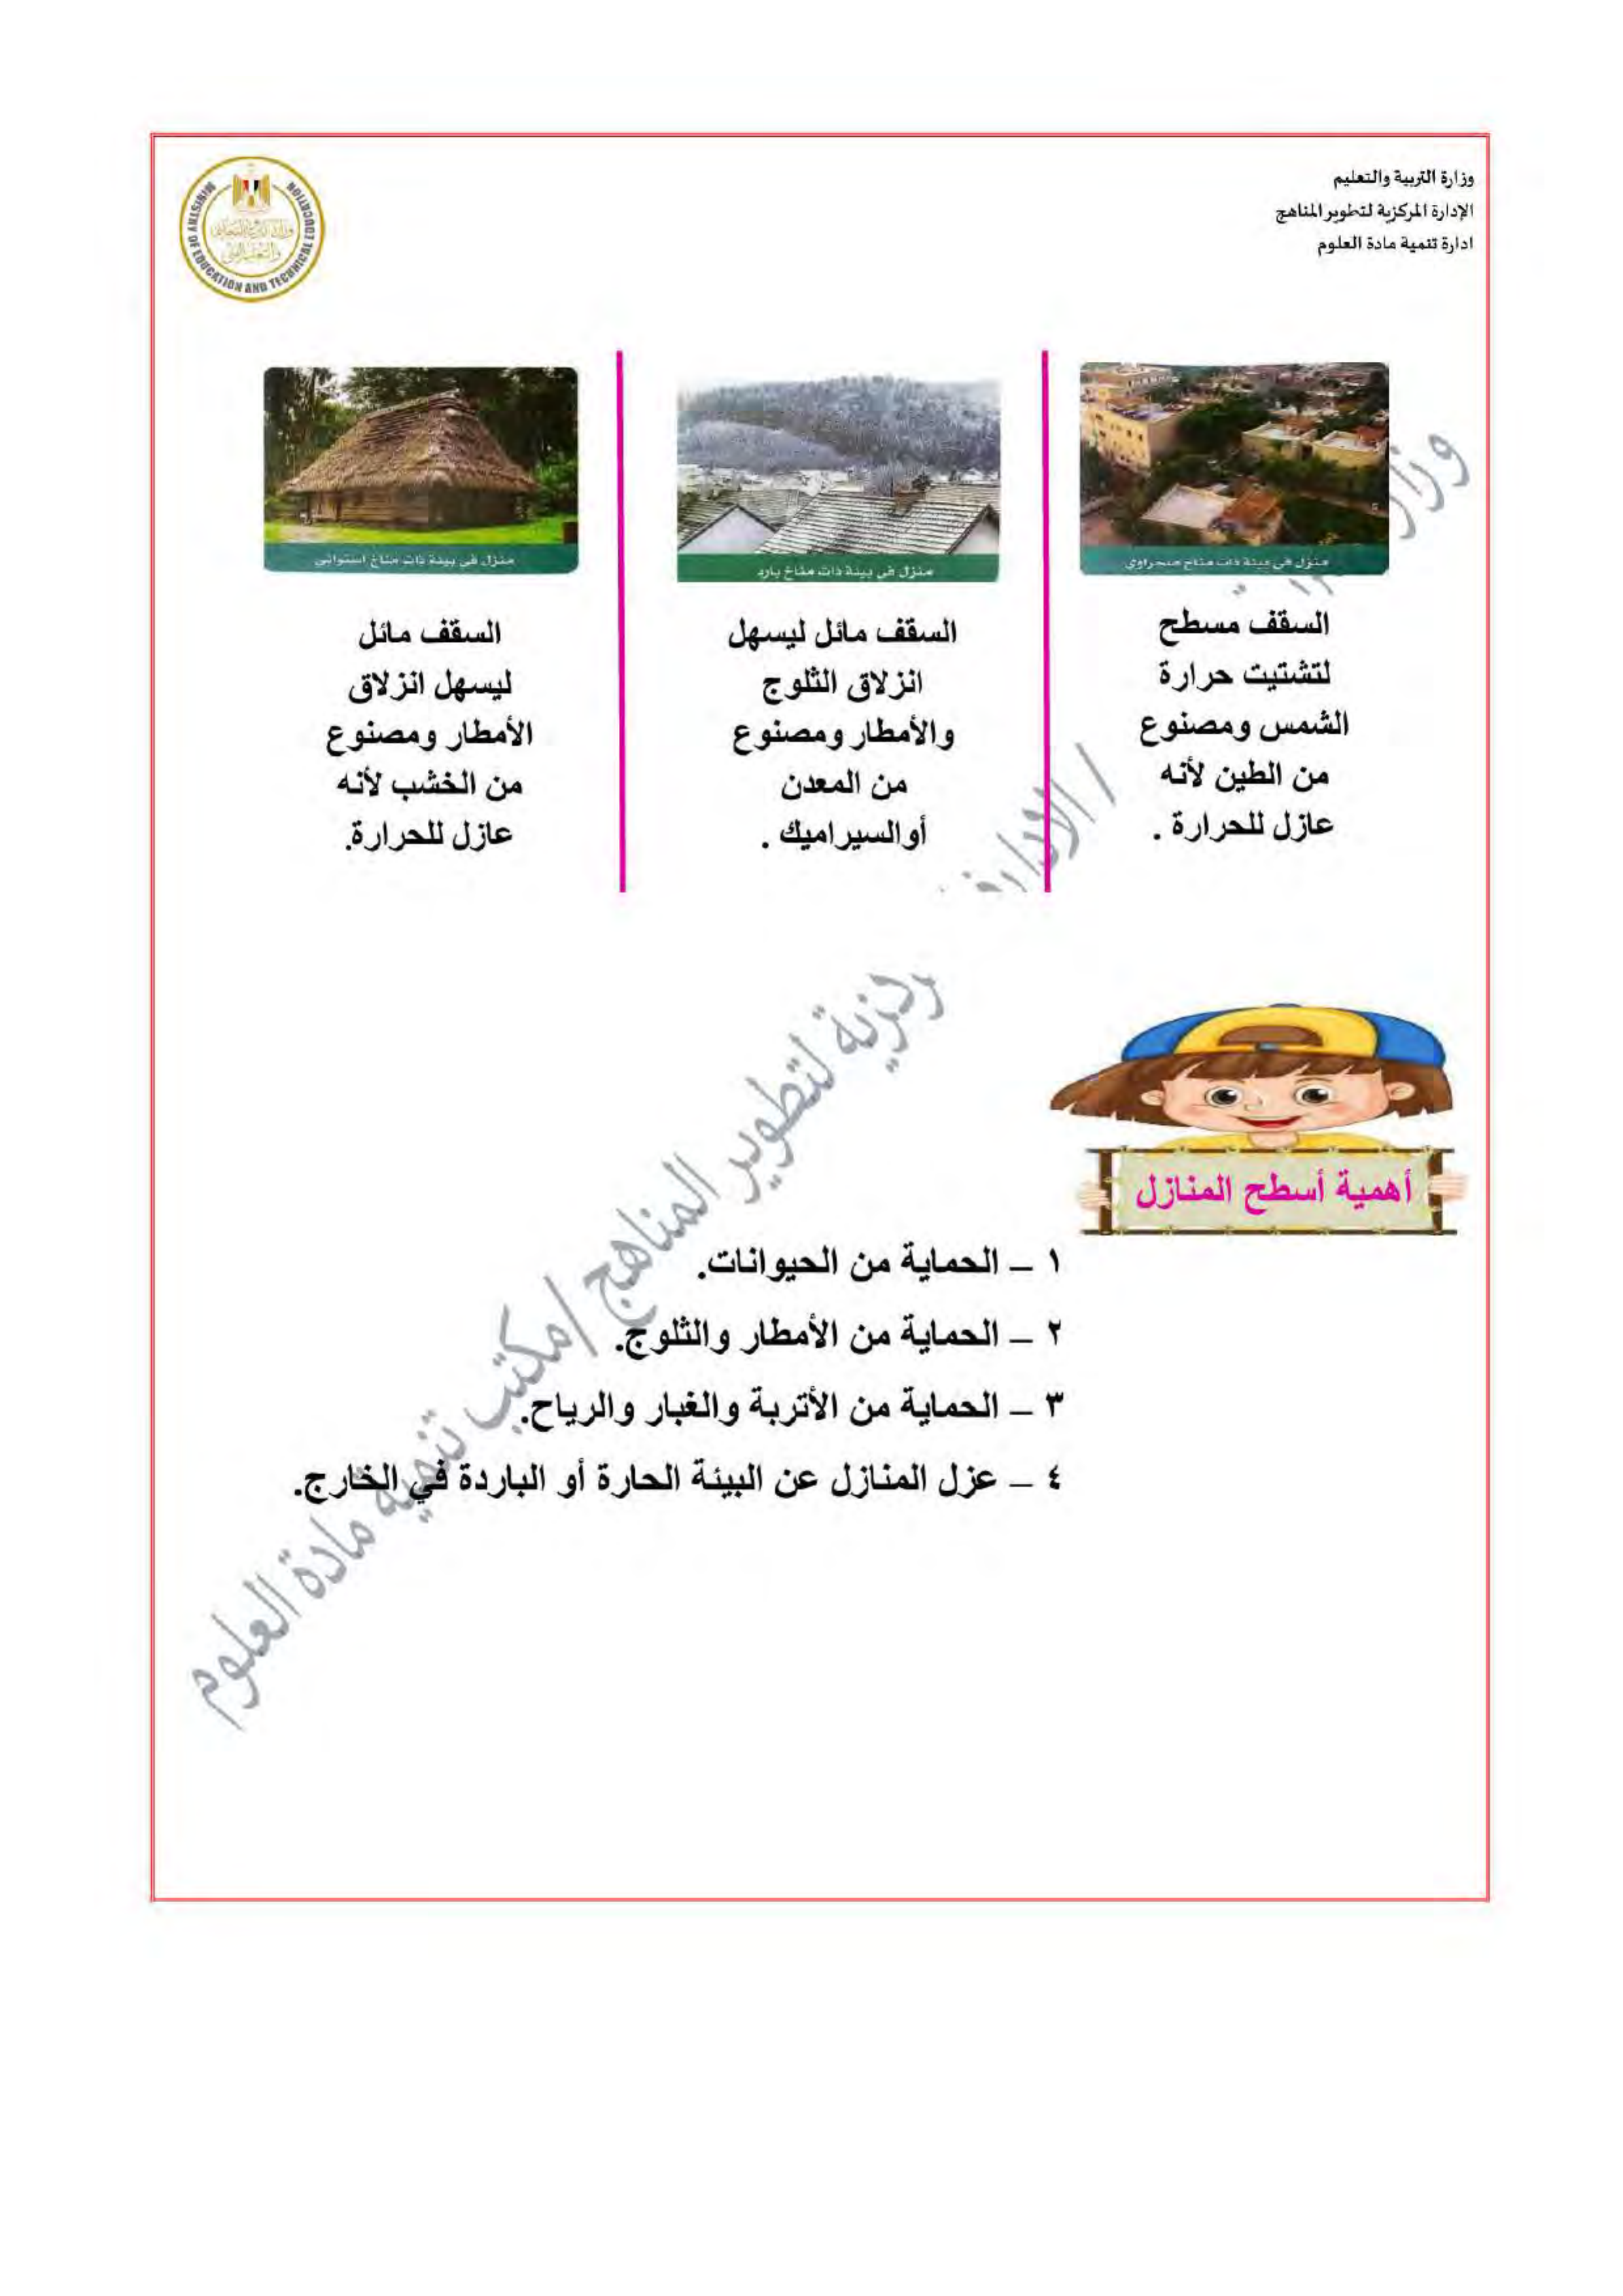 وزارة التربية والتعليم
الإدارة المركزية لتطوير المناهج
ادارة تنمية مادة العلوم
MINISTRY OF EDUCATION AND TECHNICAL EDUCATION
منزل في بيئة ذات مناخ صحراوي
السقف مسطح
لتشتيت حرارة
الشمس ومصنوع
من الطين لأنه
عازل للحرارة .
منزل في بيئة ذات مناخ بارد
السقف مائل ليسهل
انزلاق الثلوج
والأمطار ومصنوع
من المعدن
أوالسيراميك .
منزل في بيئة ذات مناخ استوائي
السقف مائل
ليسهل انزلاق
الأمطار ومصنوع
من الخشب لأنه
عازل للحرارة.
أهمية أسطح المنازل
١ – الحماية من الحيوانات.
٢ – الحماية من الأمطار والثلوج.
٣ – الحماية من الأتربة والغبار والرياح.
٤ – عزل المنازل عن البيئة الحارة أو الباردة في الخارج.
لتطوير المناهج /مكتب تنمية مادة العلوم